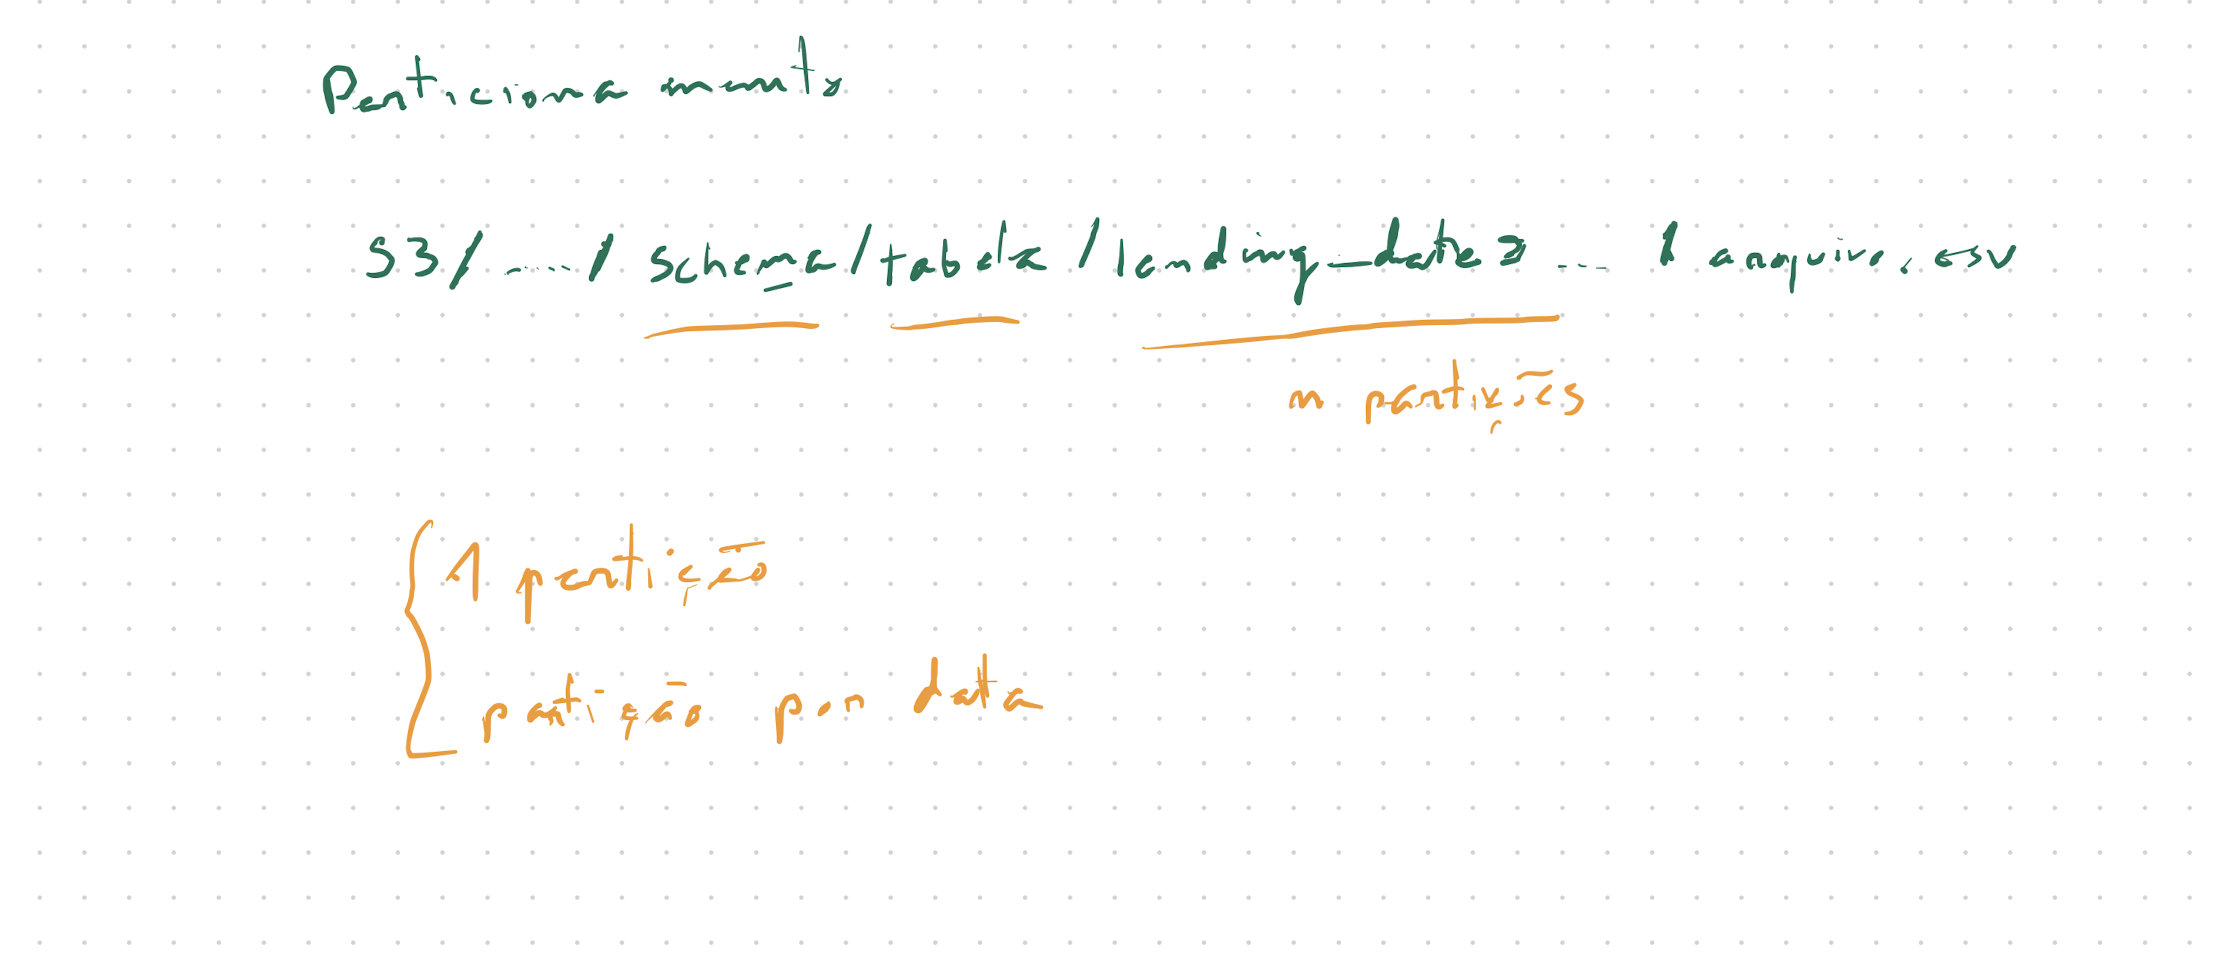 Particionamento
S3/ ..... / schema / tabela / landing_date= ... / arquivo.csv
n partições
1 partição
partição por data